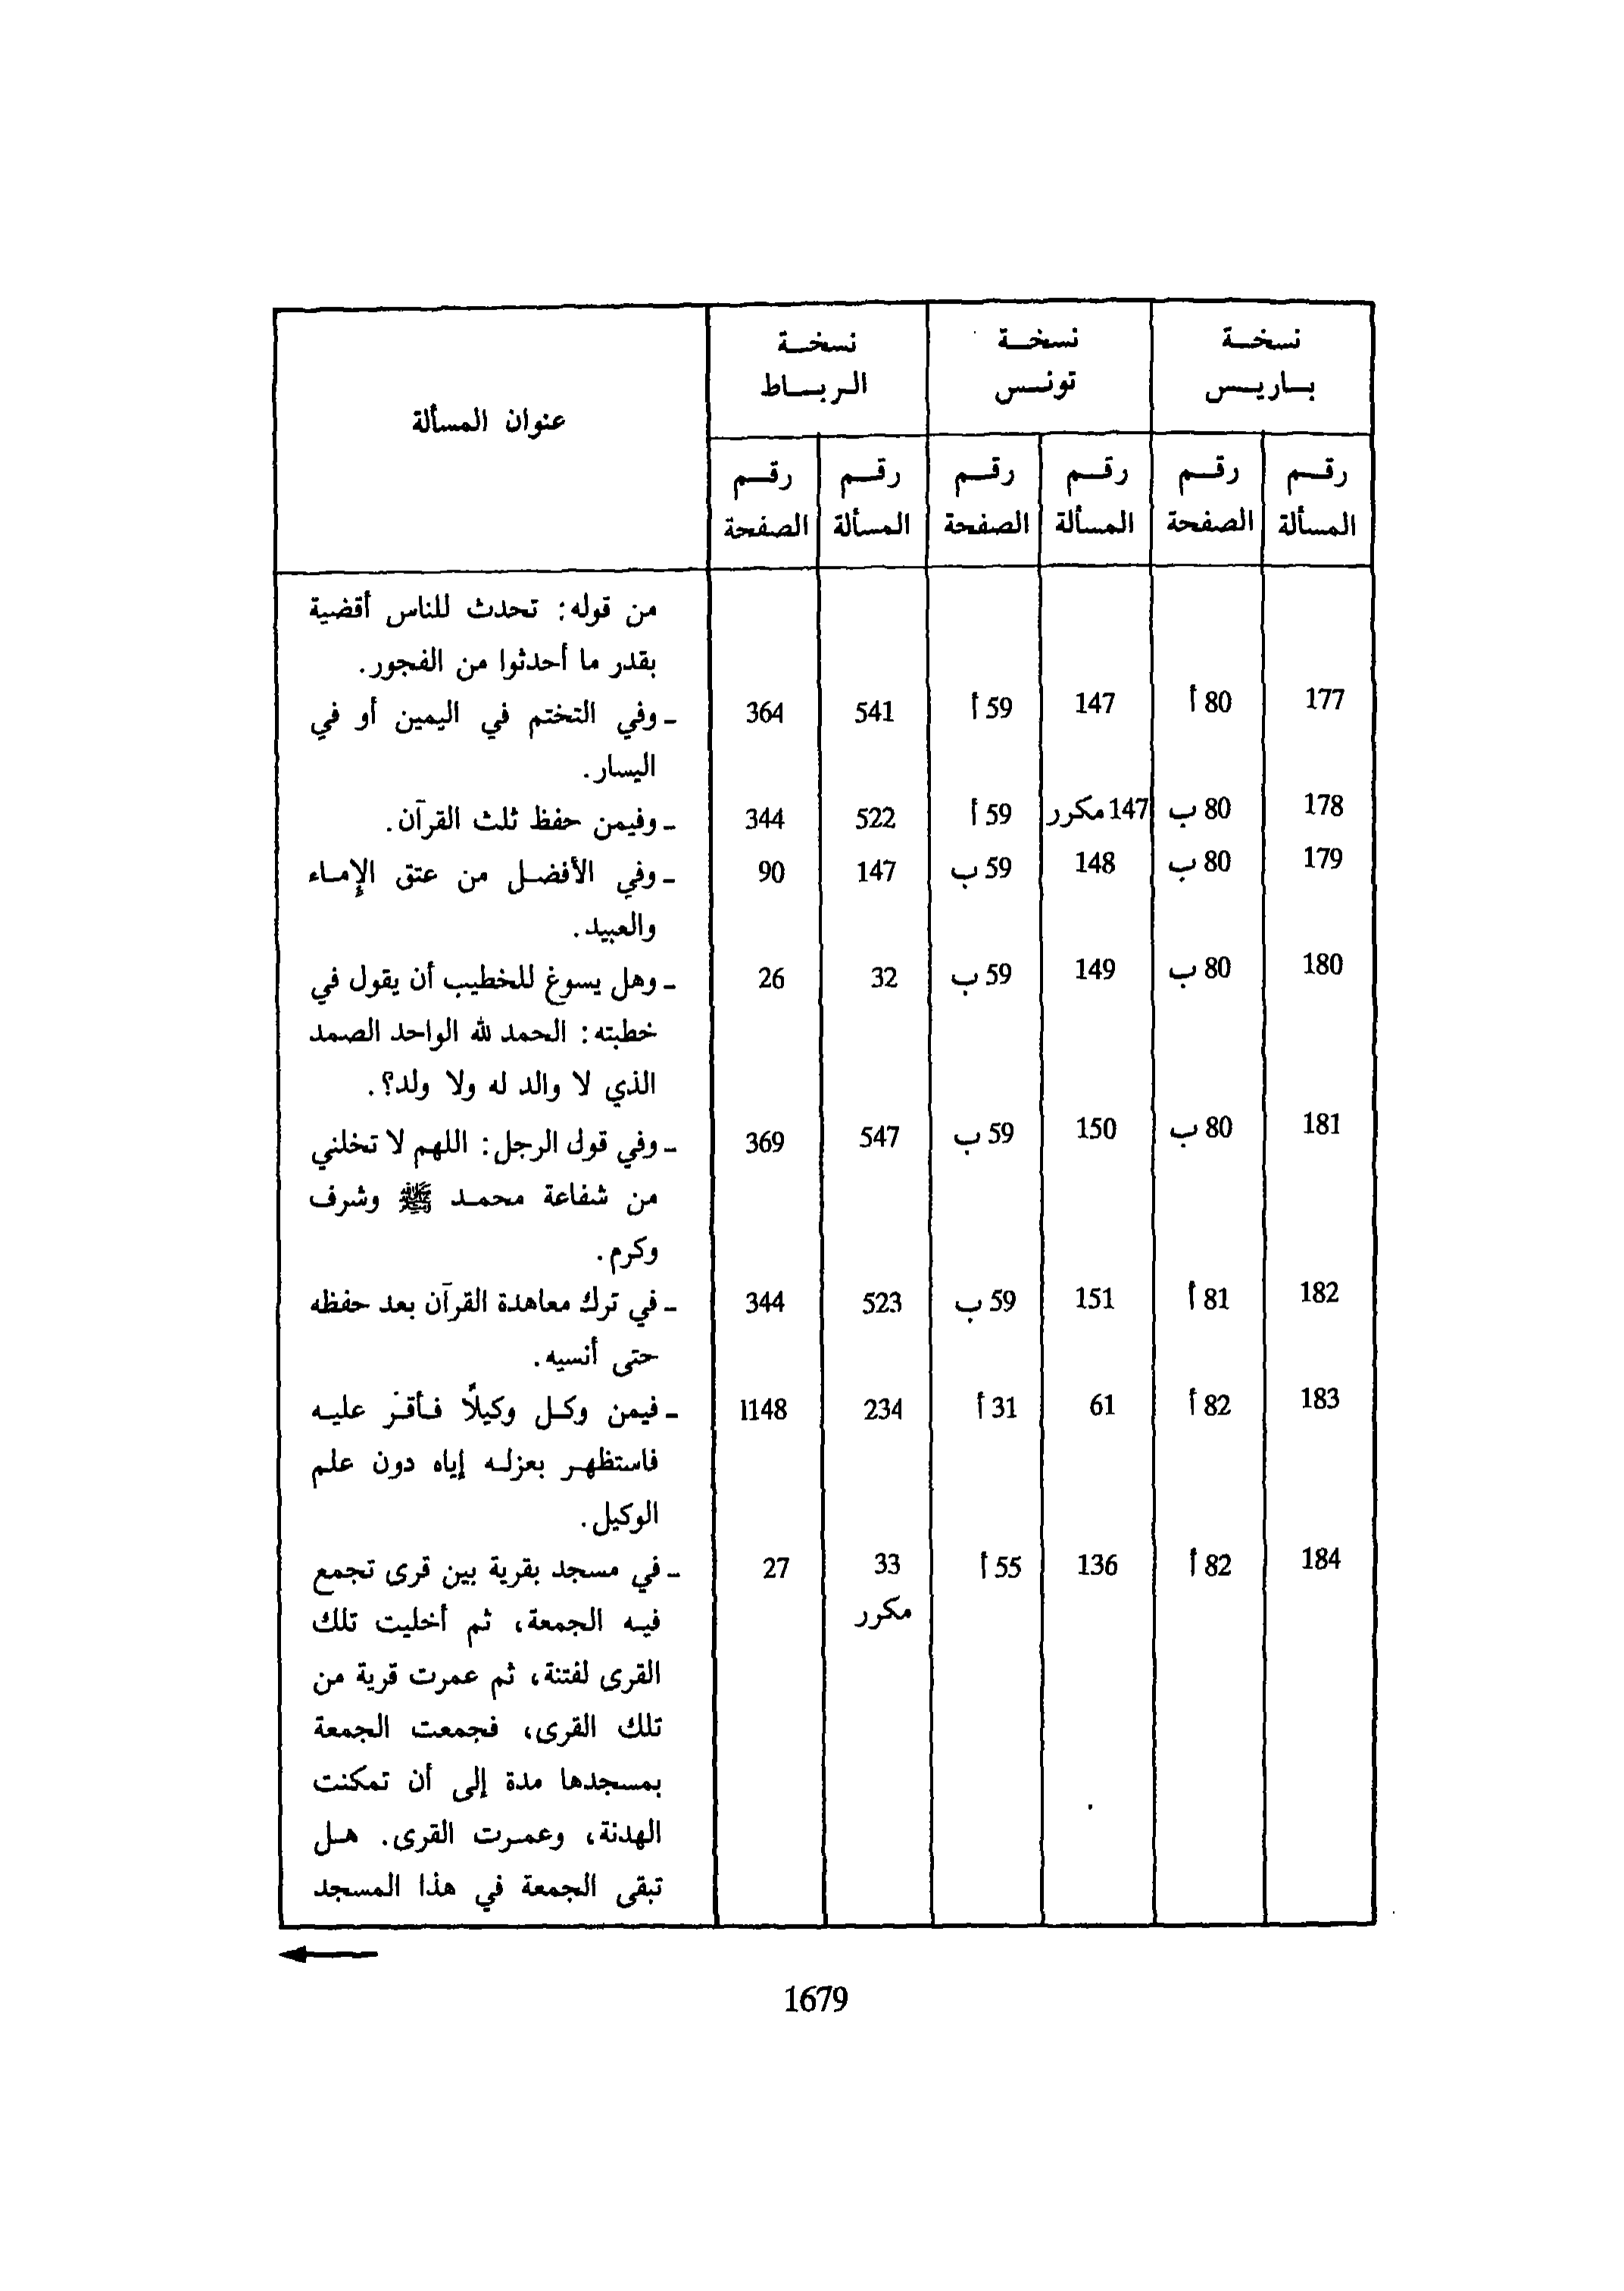 نسخة نسخة نسخة عنوان المسألة
باريس تونس الرباط
رقم رقم رقم رقم رقم رقم
المسألة الصفحة المسألة الصفحة المسألة الصفحة
من قوله: تحدث للناس أقضية
بقدر ما أحدثوا من الفجور.
177 80 أ 147 59 أ 541 364 ـ وفي التختم في اليمين أو في
اليسار.
178 80 ب 147 مكرر 59 أ 522 344 ـ وفيمن حفظ ثلث القرآن.
179 80 ب 148 59 ب 147 90 ـ وفي الأفضل من عتق الإماء
والعبيد.
180 80 ب 149 59 ب 32 26 ـ وهل يسوغ للخطيب أن يقول في
خطبته: الحمد لله الواحد الصمد
الذي لا والد له ولا ولد؟.
181 80 ب 150 59 ب 547 369 ـ وفي قول الرجل: اللهم لا تخلني
من شفاعة محمد ﷺ وشرف
وكرم.
182 81 أ 151 59 ب 523 344 ـ في ترك معاهدة القرآن بعد حفظه
حتى أنسيه.
183 82 أ 61 31 أ 234 1148 ـ فيمن وكل وكيلًا فأقرّ عليه
فاستظهر بعزله إياه دون علم
الوكيل.
184 82 أ 136 55 أ 33 27 ـ في مسجد بقرية بين قرى تجمع
مكرر فيه الجمعة، ثم أخليت تلك
القرى لفتنة، ثم عمرت قرية من
تلك القرى، فجمعت الجمعة
بمسجدها مدة إلى أن تمكنت
الهدنة، وعمرت القرى. هل
تبقى الجمعة في هذا المسجد
1679